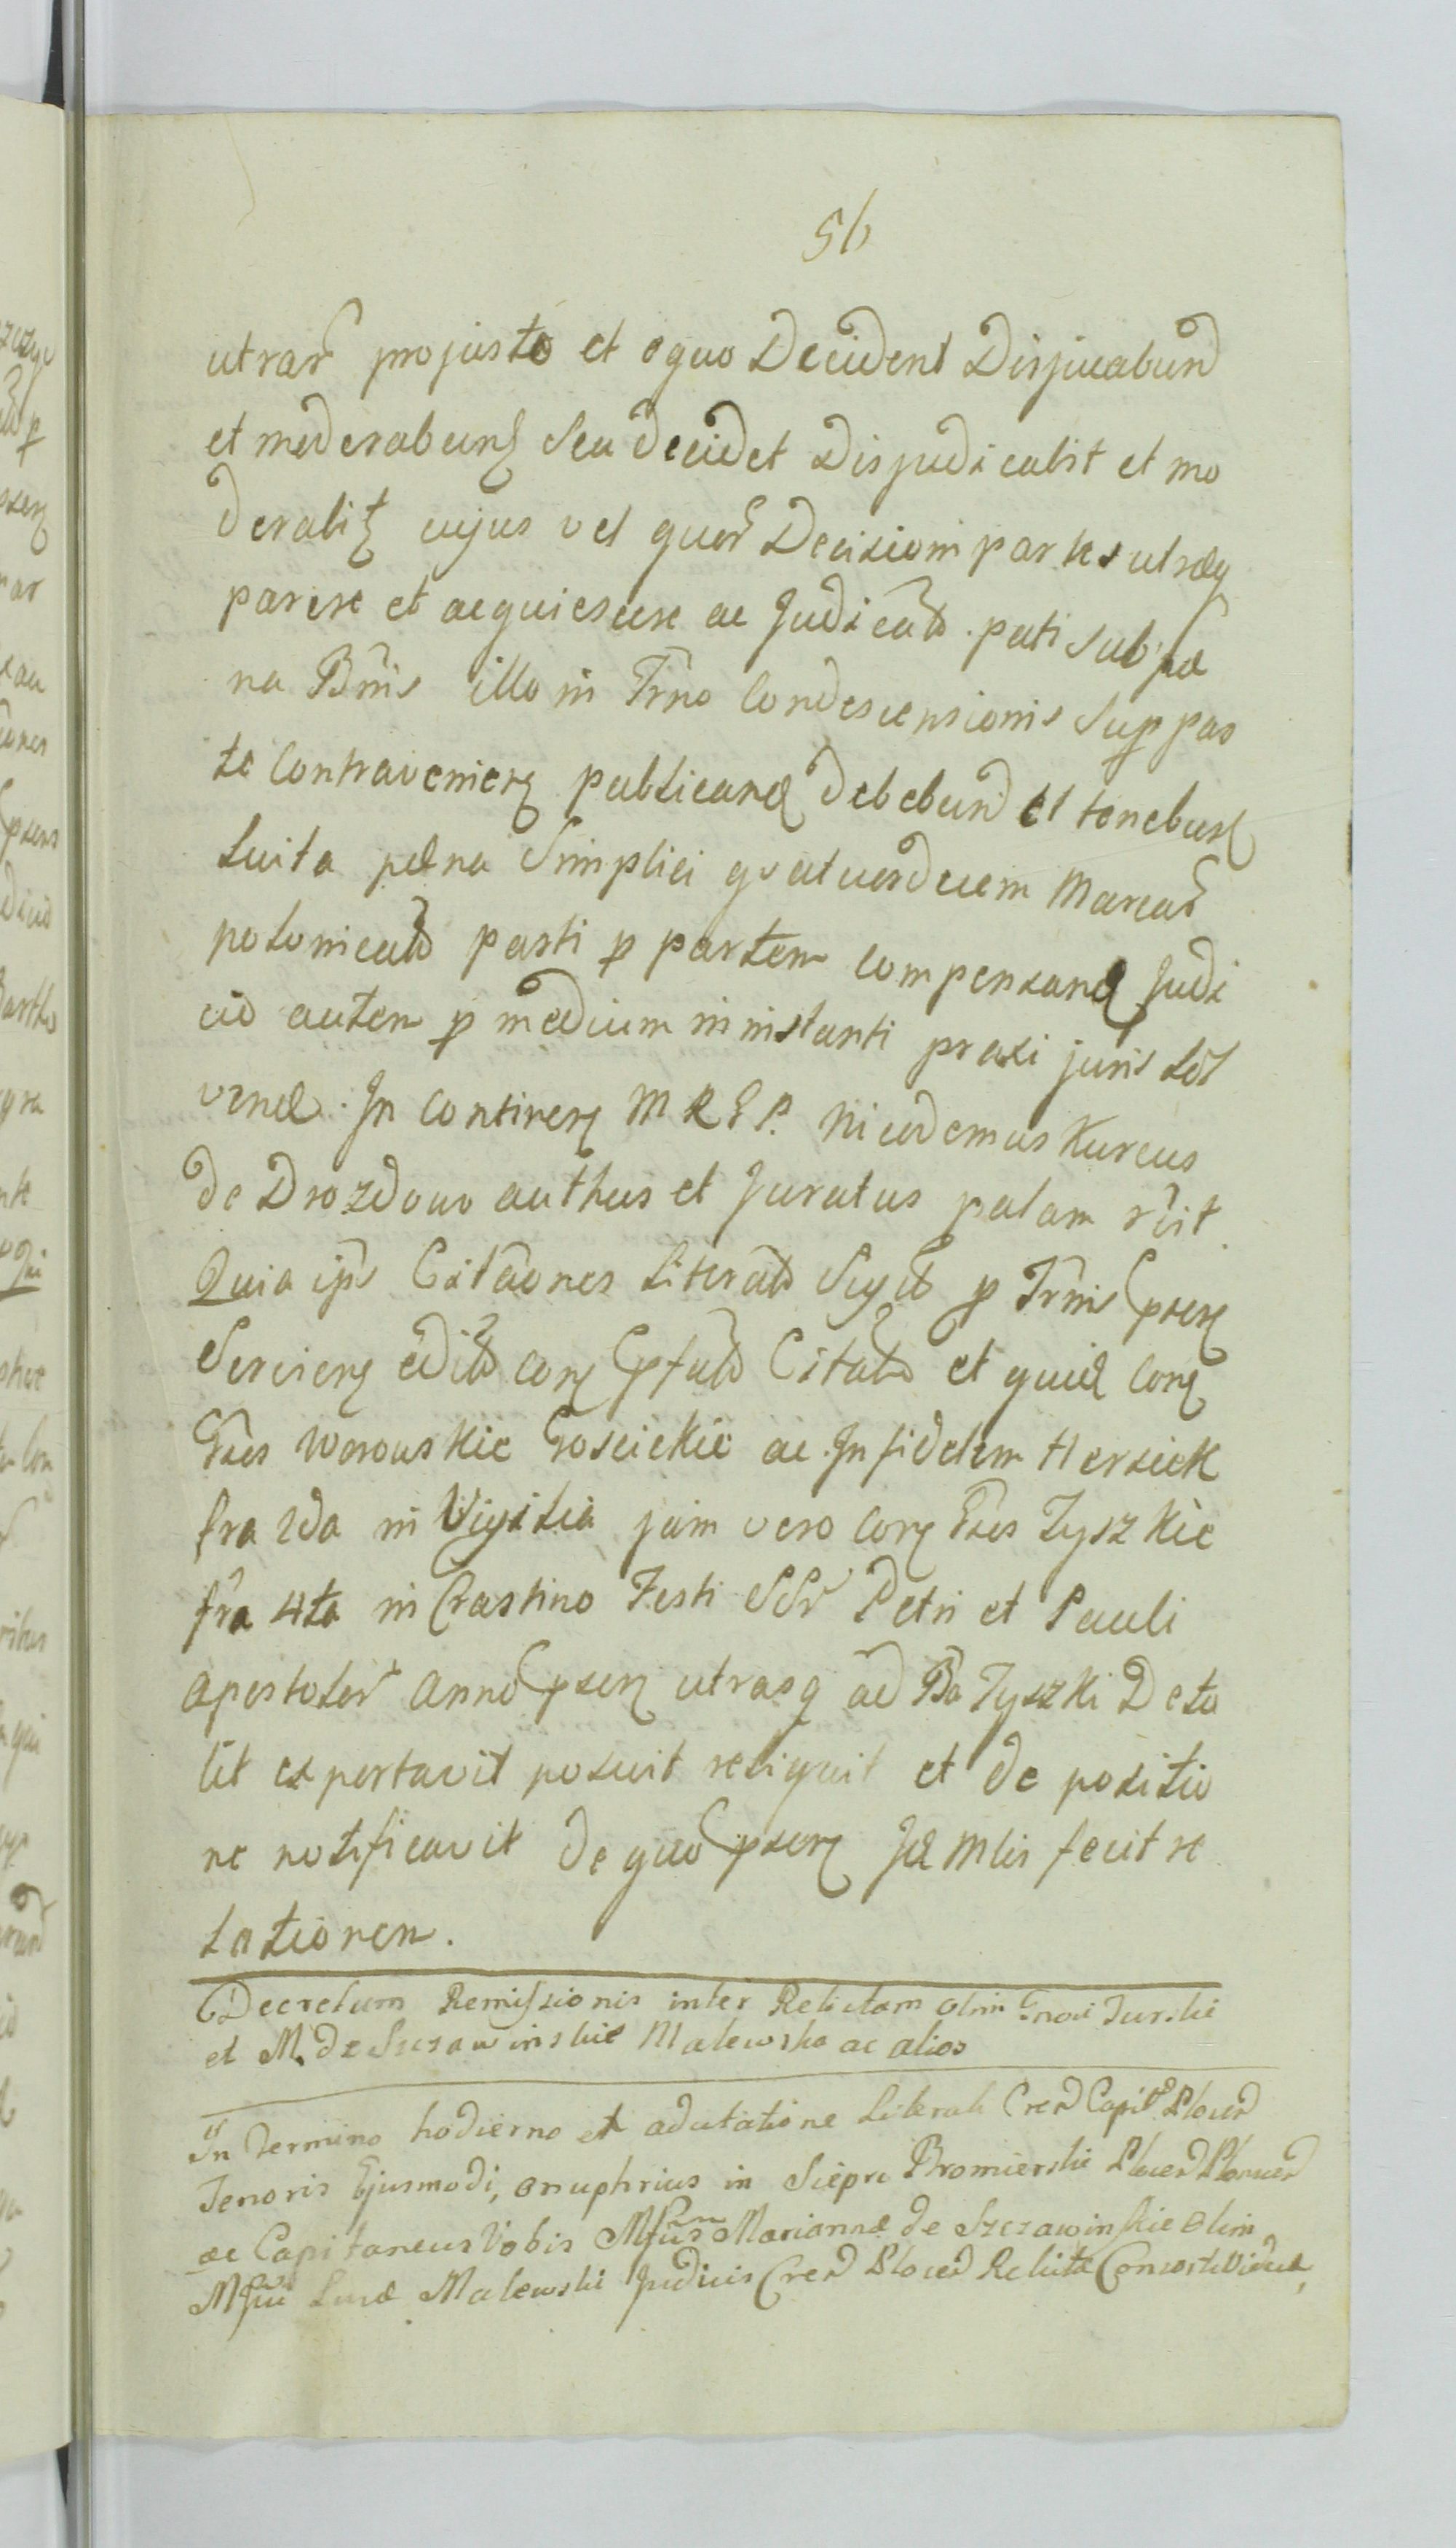 56
utrar projusto et equo Decident Disjucabund
et moderabunt seu decidet Disjudicabit et mo
derabit cujus vel quor Decisioni partes utræq
parere et acquiescere ac Judicato pati sub pæ
na Bnnis illo in Trno Condescensionis sup par
te Contravenien publicand debebund et tenebunt
Luita pæna Simplici quatuordecim Marcar
polonicalb parti p partem compensand Judi
cio autem p medium in instanti praxi juris sol
vend. In Continen M R G P. Nicodemus Kurcus
de Drozdowo authus et Juratus palam rcit
Quia ips Citaones Literalb Sigil p Trnis psen
Servien edit con pfato Citato et quid Con
Gsos Worowskie Goscickie ac Infidelem Hersick
fra 2da in Vigilia jam vero Con Gsos Tyszkie
fra 4ta in Crastino Festi SSr Petri et Pauli
Apostolor Anno psen utrasq ad Ba Tyszki Detu
lit exportavit posuit reliquit et de positio
ne notificavit de quo psen Id Mlis fecit re
lationem.
Decretum Remissionis inter Relictam olim Gnosi Turskie
et M. de Szczawinskie Malewska ac alios
In Termino hodierno et adcitatione Literali Cren Capit Plocen
Tenoris Ejusmodi, Onuphrius in Sieprc Bromierski Plocen Plonscen
ac Capitaneus Vobis Mfcus Mariannæ de Szczawinskie Olim
Mfci Lucæ Malewski Judicis Cren Plocen Relicta Consorti Viduæ,